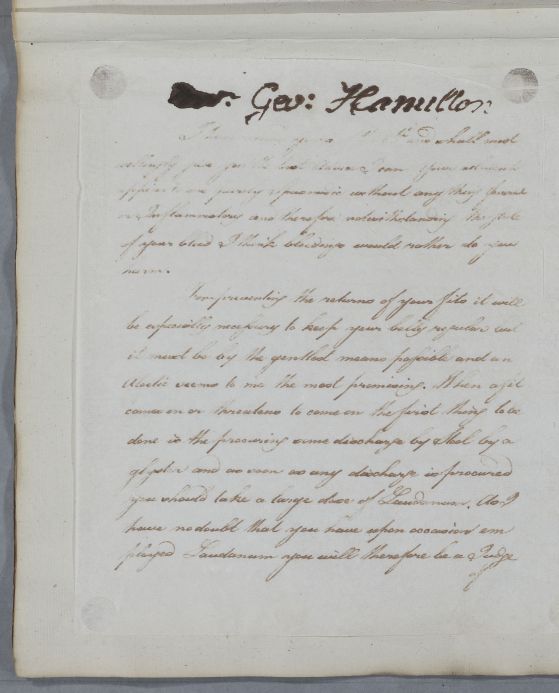 Geo: Hamilton
I have yours and shall most
willingly give you the best advice I can. Your ailment
appears one purely spasmodic without any thing
or Inflammatory and therefore notwithstanding the state
of your blood I think bleedings would rather do you
harm.
For preventing the returns of your fits it will
be especially necessary to keep your belly regular but
it must be by the gentlest means possible and an
Aloetic seems to me the most promising. When a fit
comes on or threatens to come on the first thing to be
done is the procuring some discharge by Stool by a
glyster and as soon as any discharge is procured
you should take a large dose of Laudanum. As I
have no doubt that you have upon occasion em
ployed Laudanum you will therefore be a Judge
of